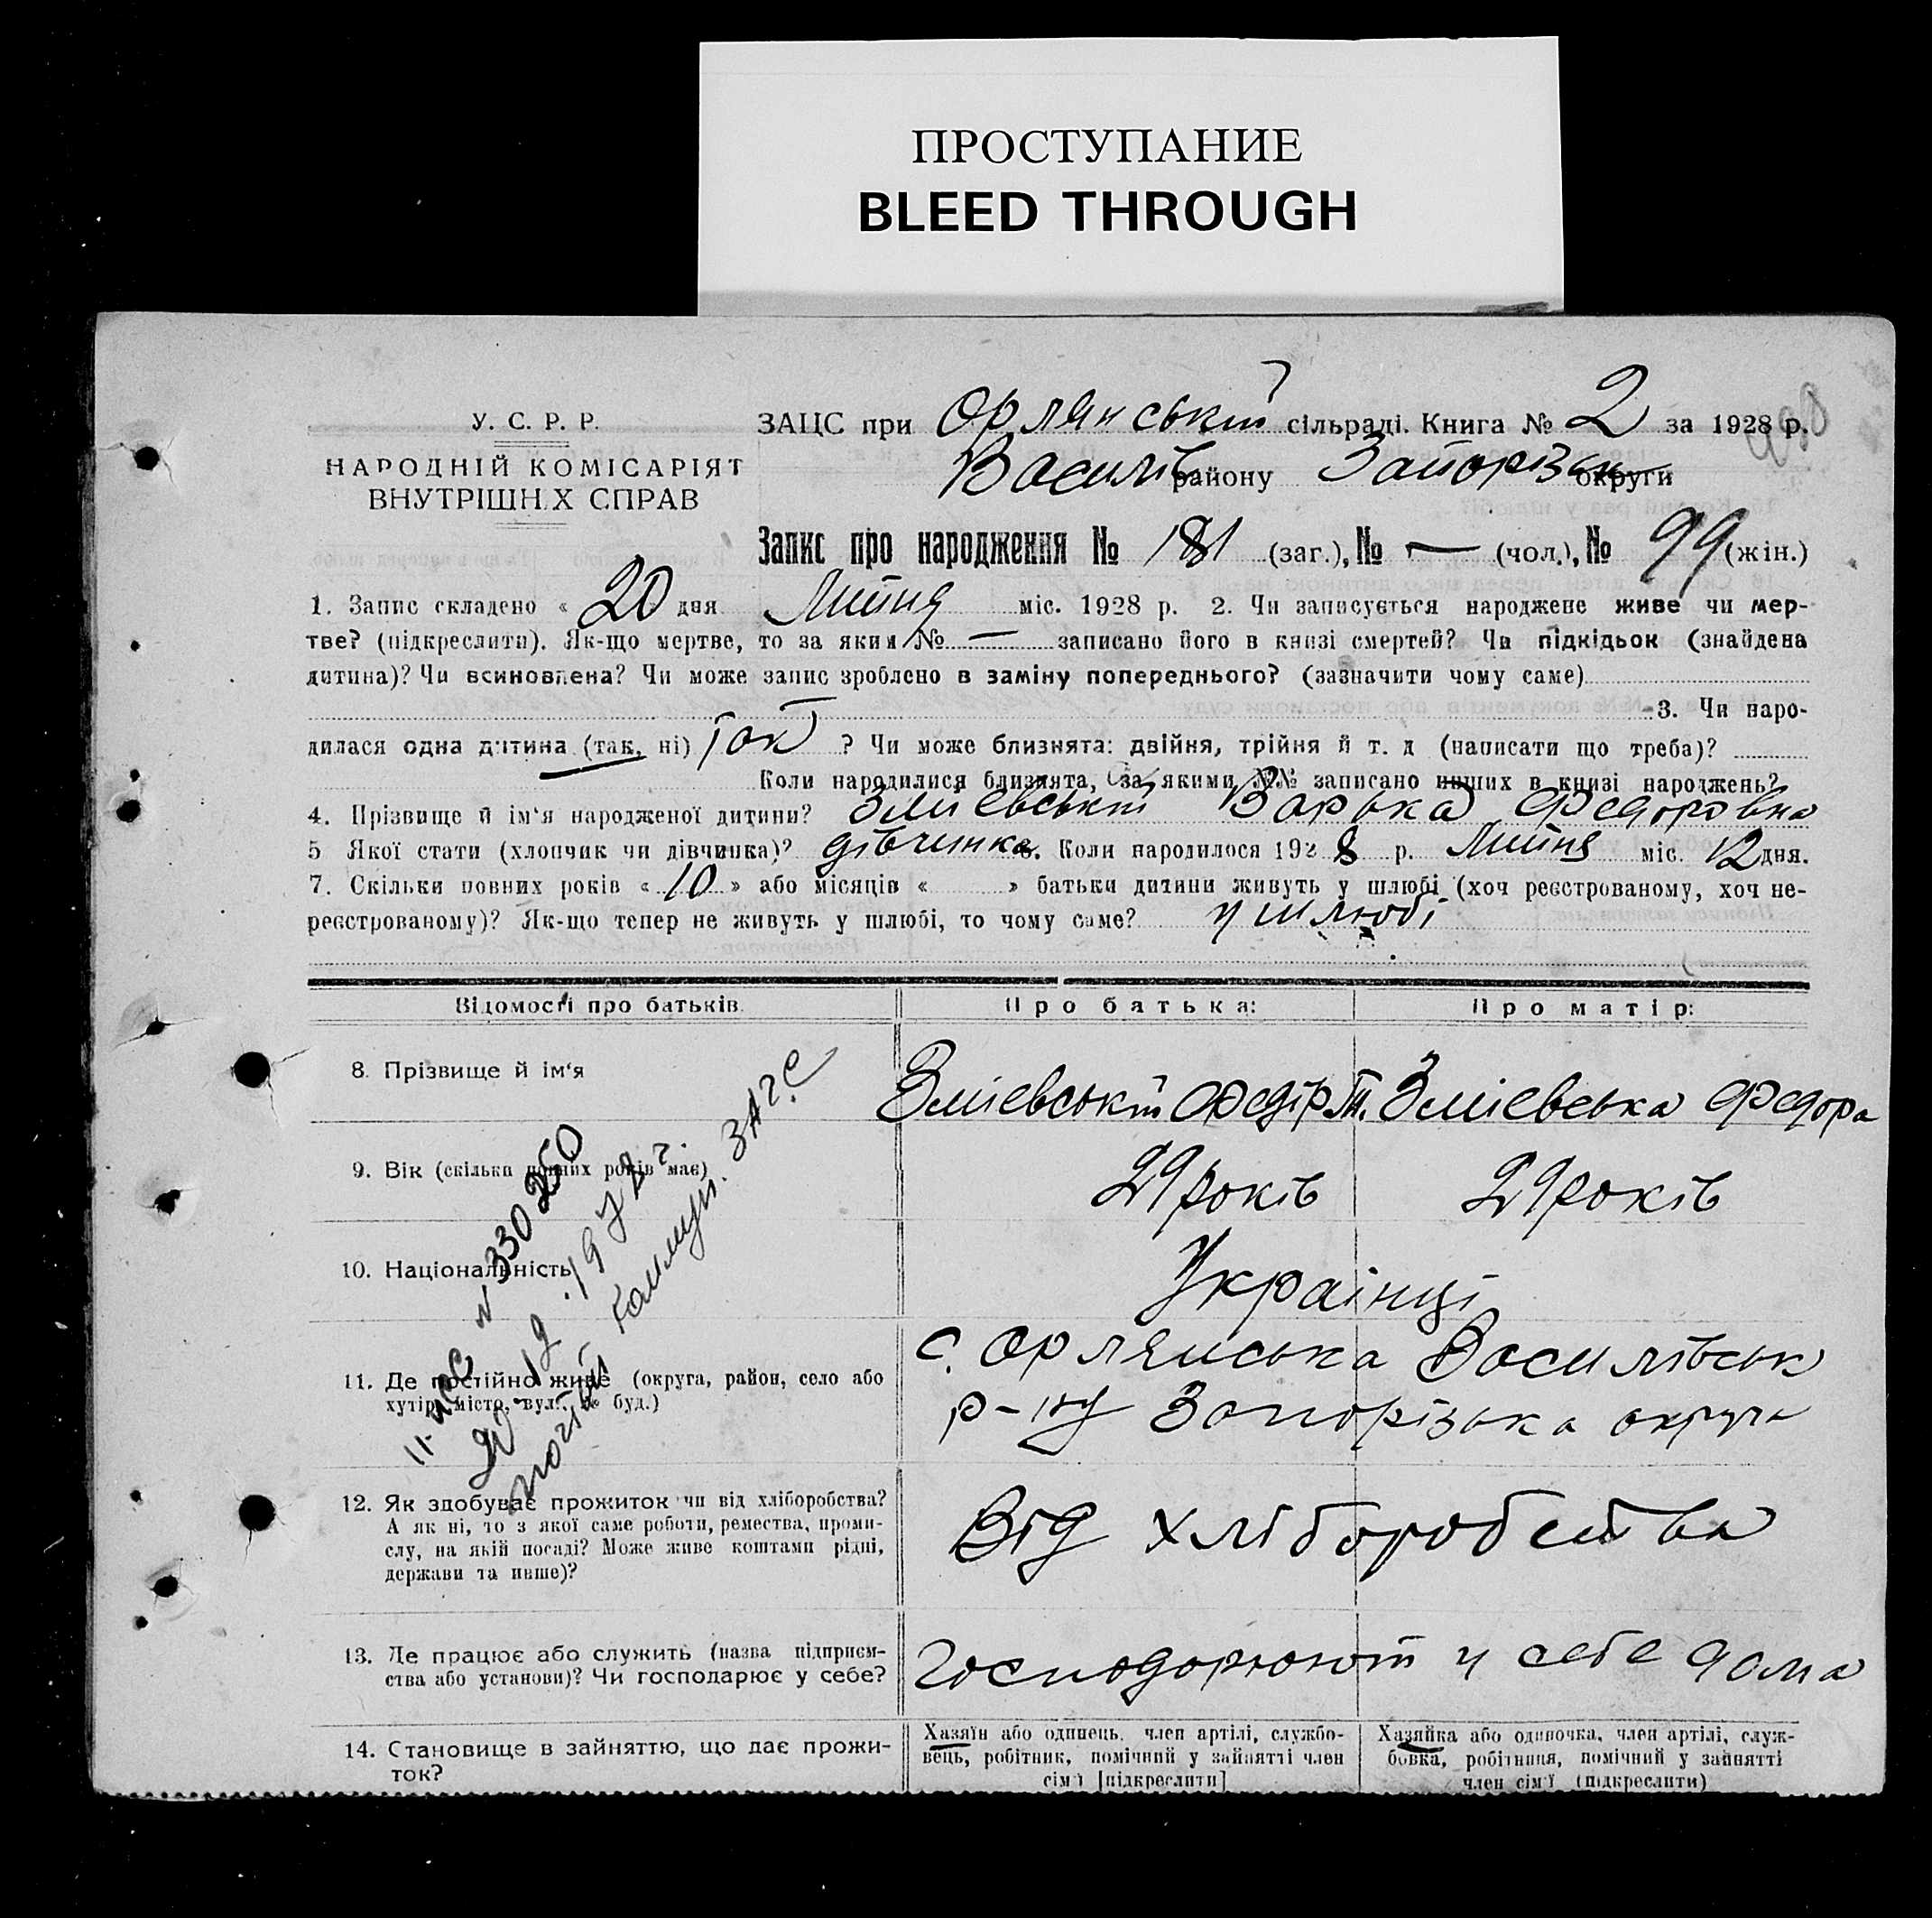 ПРОСТУПАНИЕ
BLEED THROUGH
У. С. Р. Р.
НАРОДНІЙ КОМІСАРІЯТ
ВНУТРІШН.Х СПРАВ
ЗАЦС при Орлянській сільраді. Книга № 2 за 1928 р.
Василів району Запорізьк округи
Запис про народження № 181 (заг.), № — (чол.), № 99 (жін.)
1. Запис складено « 20 дня Липня міс. 1928 р. 2. Чи записується народжене живе чи мер-
тве? (підкреслити). Як-що мертве, то за яким № — записано його в книзі смертей? Чи підкідьок (знайдена
дитина)? Чи всиновлена? Чи може запис зроблено в заміну попереднього? (зазначити чому саме)
3. Чи наро-
дилася одна дитина (так, ні) Так ? Чи може близнята: двійня, трійня й т. д (написати що треба)?
Коли народилися близнята, за якими №№ записано инших в книзі народжень?
4. Прізвище й ім'я народженої дитини? Зміевській Варька Федоровна
5 Якої стати (хлопчик чи дівчинка)? дівчинка 6. Коли народилося 1928 р. Липня міс. 12 дня.
7. Скільки повних років « 10 » або місяців « » батьки дитини живуть у шлюбі (хоч реєстрованому, хоч не-
реєстрованому)? Як-що тепер не живуть у шлюбі, то чому саме? у шлюбі
Відомості про батьків
Про батька:
Про матір:
8. Прізвище й ім'я
Зміевській Федір Т.
Зміевська Федора
9. Вік (скільки повних років має)
29 років
29 років
10. Національність
Українці
11. Де постійно живе (округа, район, село або
хутір, місто, вул., № буд.)
с. Орлянська Василівськ
р-ну Запорізька округи
12. Як здобуває прожиток чи від хліборобства?
А як ні, то з якої саме роботи, ремества, проми-
слу, на якій посаді? Може живе коштами рідні,
держави та инше)?
Від хліборобства
13. Де працює або служить (назва підприєм-
ства або установи)? Чи господарює у себе?
Господорюют у себе дома
14. Становище в зайняттю, що дає прожи-
ток?
Хазяїн або одинець, член артілі, службо-
вець, робітник, помічний у зайнятті член
сім'ї [підкреслити]
Хазяйка або одиночка, член артілі, служ-
бовка, робітниця, помічний у зайнятті
член сім'ї (підкреслити)
№ 330250
ЗАГС